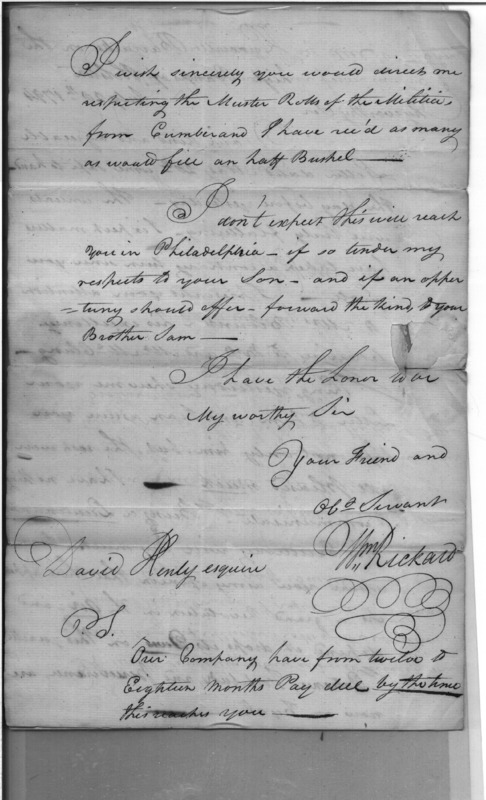 I wish sincerely you would direct me
respecting the Muster Rolls of the Militia
from Cumberand I have rec'd as many
as would fill an haff Bushel
I don't expect this will reach
you in Philadelphia - if so tender my
respects to your Son - and if an opper
=tuny should offer - forward the kind, to your
Brother Sam
I have the honor to be
My worthy Sir
Your Friend and
Obt Servant
Wm Rickard
David Henly esquire
P.S.
Our Company have from twelve to
Eighteen Months Pay due by the time
this reaches you